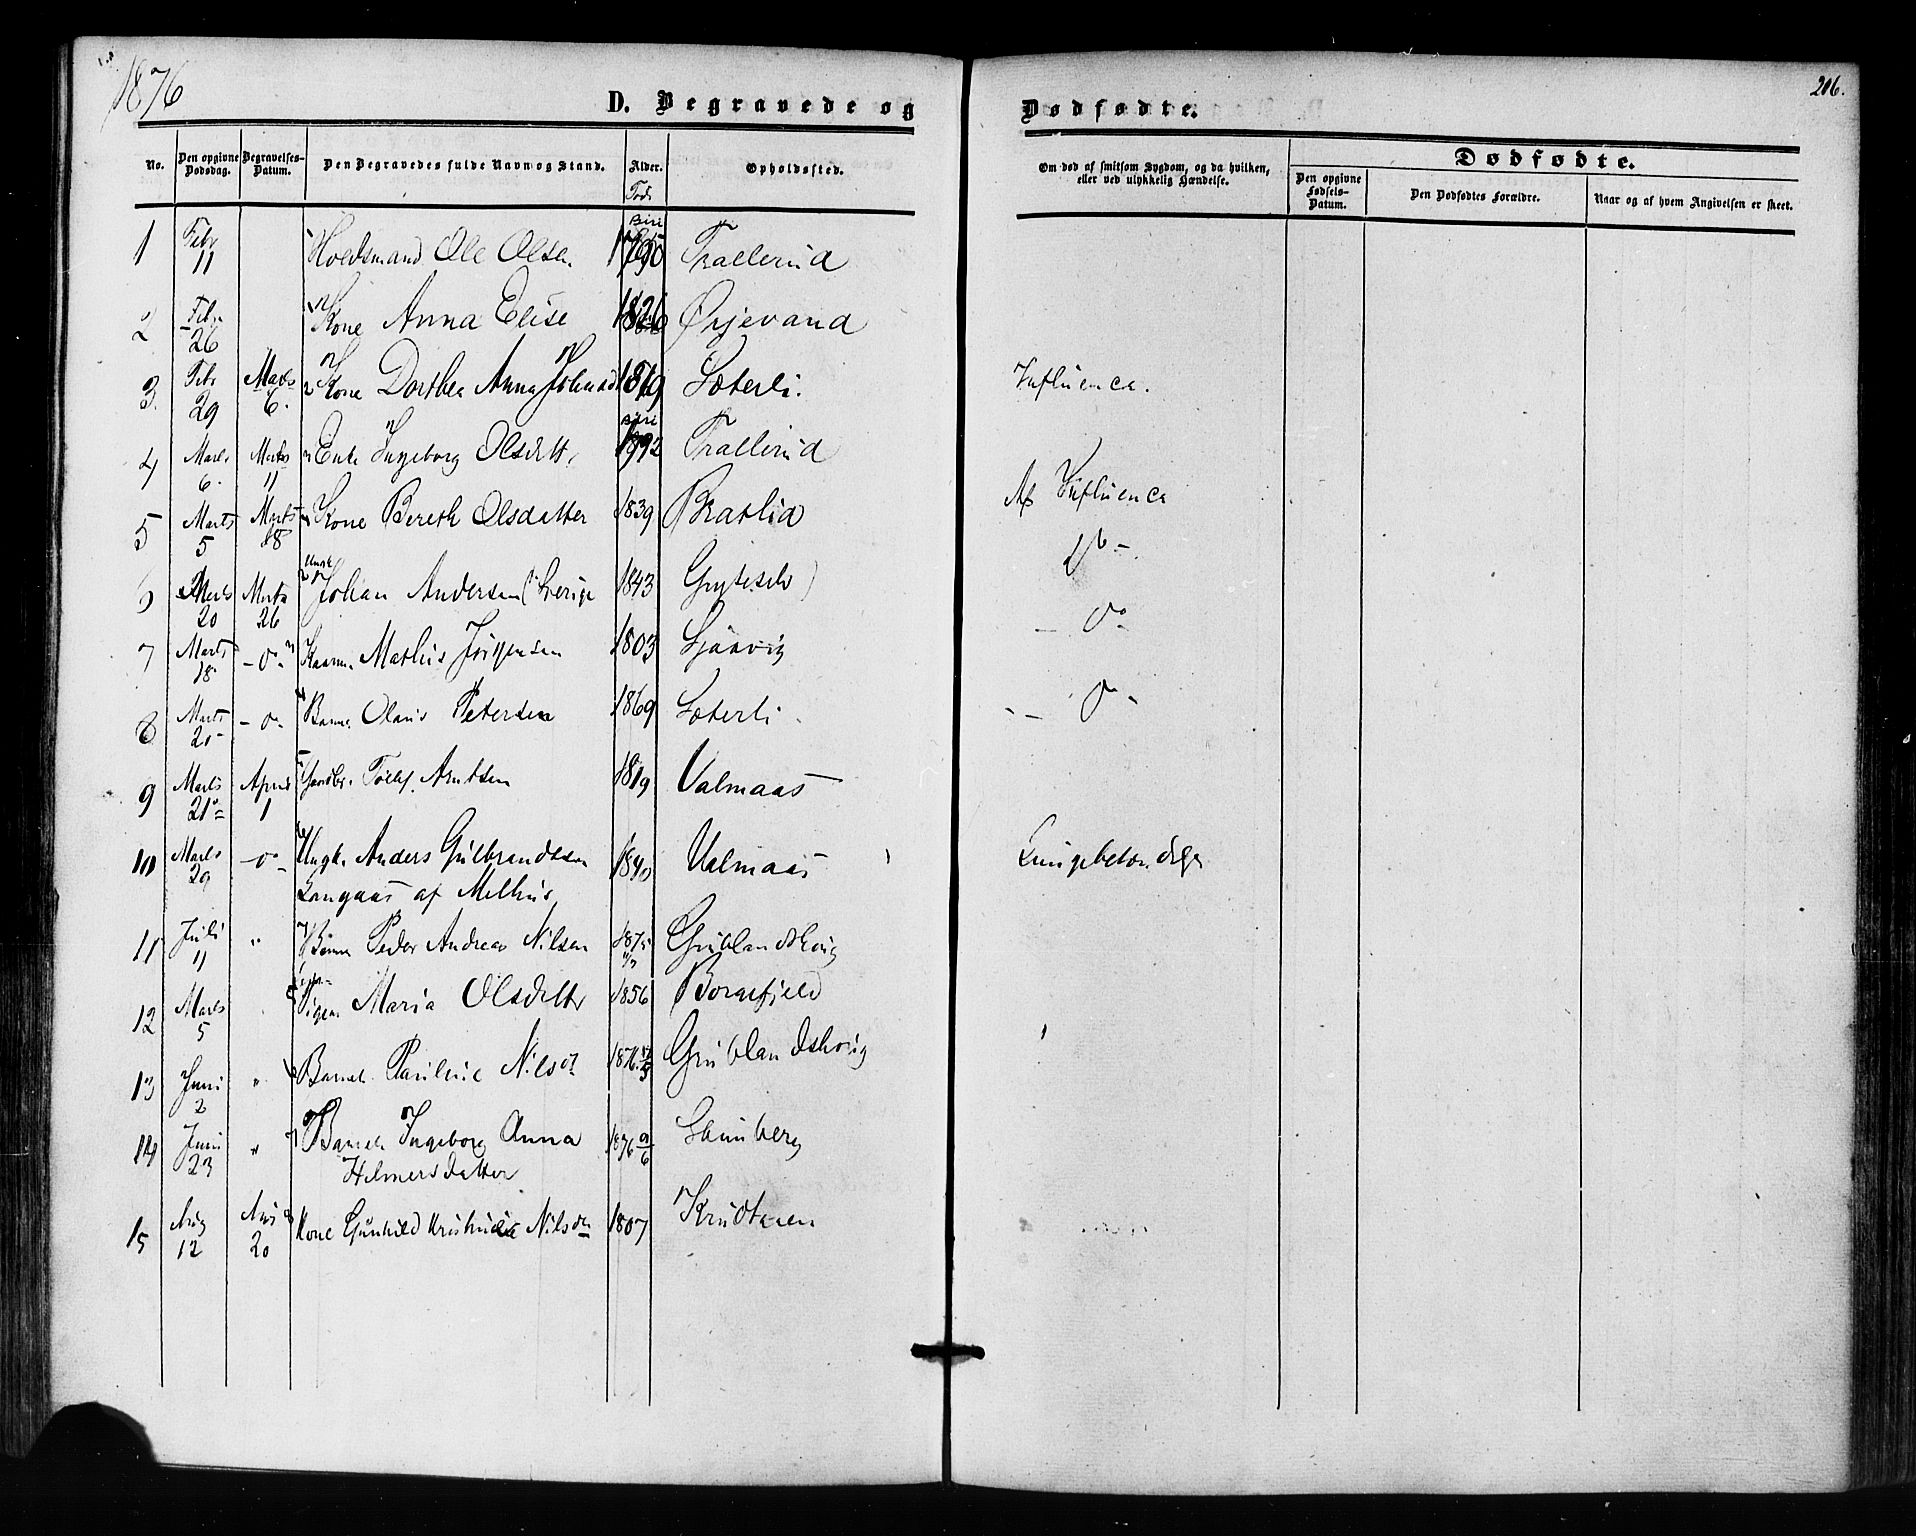 1876
206.
D. Begravede og Dødfødte.
No.
Den opgivne Dødsdag.
Begravelses-Datum.
Den Begravedes fulde Navn og Stand.
Alder.
Opholdssted.
Om død af smitsom Sygdom, og da hvilken, eller ved ulykkelig Hændelse.
Dødfødte.
Den opgivne Fødsels-Datum.
Den Dødfødtes Forældre.
Naar og af hvem Angivelsen er skeet.
Fød.
1 Febr 11 Ole Olsen Biri 1790 Trallerud
2 Febr 26 Kone Anna Elise 1826 Ørjevand
3 Febr 29 Marts 6. Kone Dorthea Anna 1819 Sæterli. Influenca.
4 Marts 6. Marts 11 Enke Ingeborg Olsdatt. Biri 1792 Trallerud
5 Marts 5 Marts 18 Kone Bereth Olsdatter 1839 Bratlid Af Influenca
6 Marts 20 Marts 26 Johan Andersen 1843
7 Marts 18 -o- Mathis Jørgensen 1803 Sjaavig -o-
8 Marts 20 -o- Olaus Petersen 1869 Sæterli -o-
9 Marts 21 April 1 Arntsen 1819 Valmaas
10 Marts 29 -o- Ungk. Anders Gulbrandsen 1840 Valmaas
Langaas af Melhus
11 Juli 11 " Peder Andreas Nilsen 1875 Grublandskoug
12 Marts 5 Pigen Maria Olsdatter 1856 Borgefjeld
13 Juni 2 " Barnet Pauline Nilsd 1876 Grublandskoug
14 Juni 23 " Barnet Ingeborg Anna 1876 9/6
Helmersdatter
15 Aug 12 Aug 20 Kone Gunhild Nilsd 1807 Krudtaaen